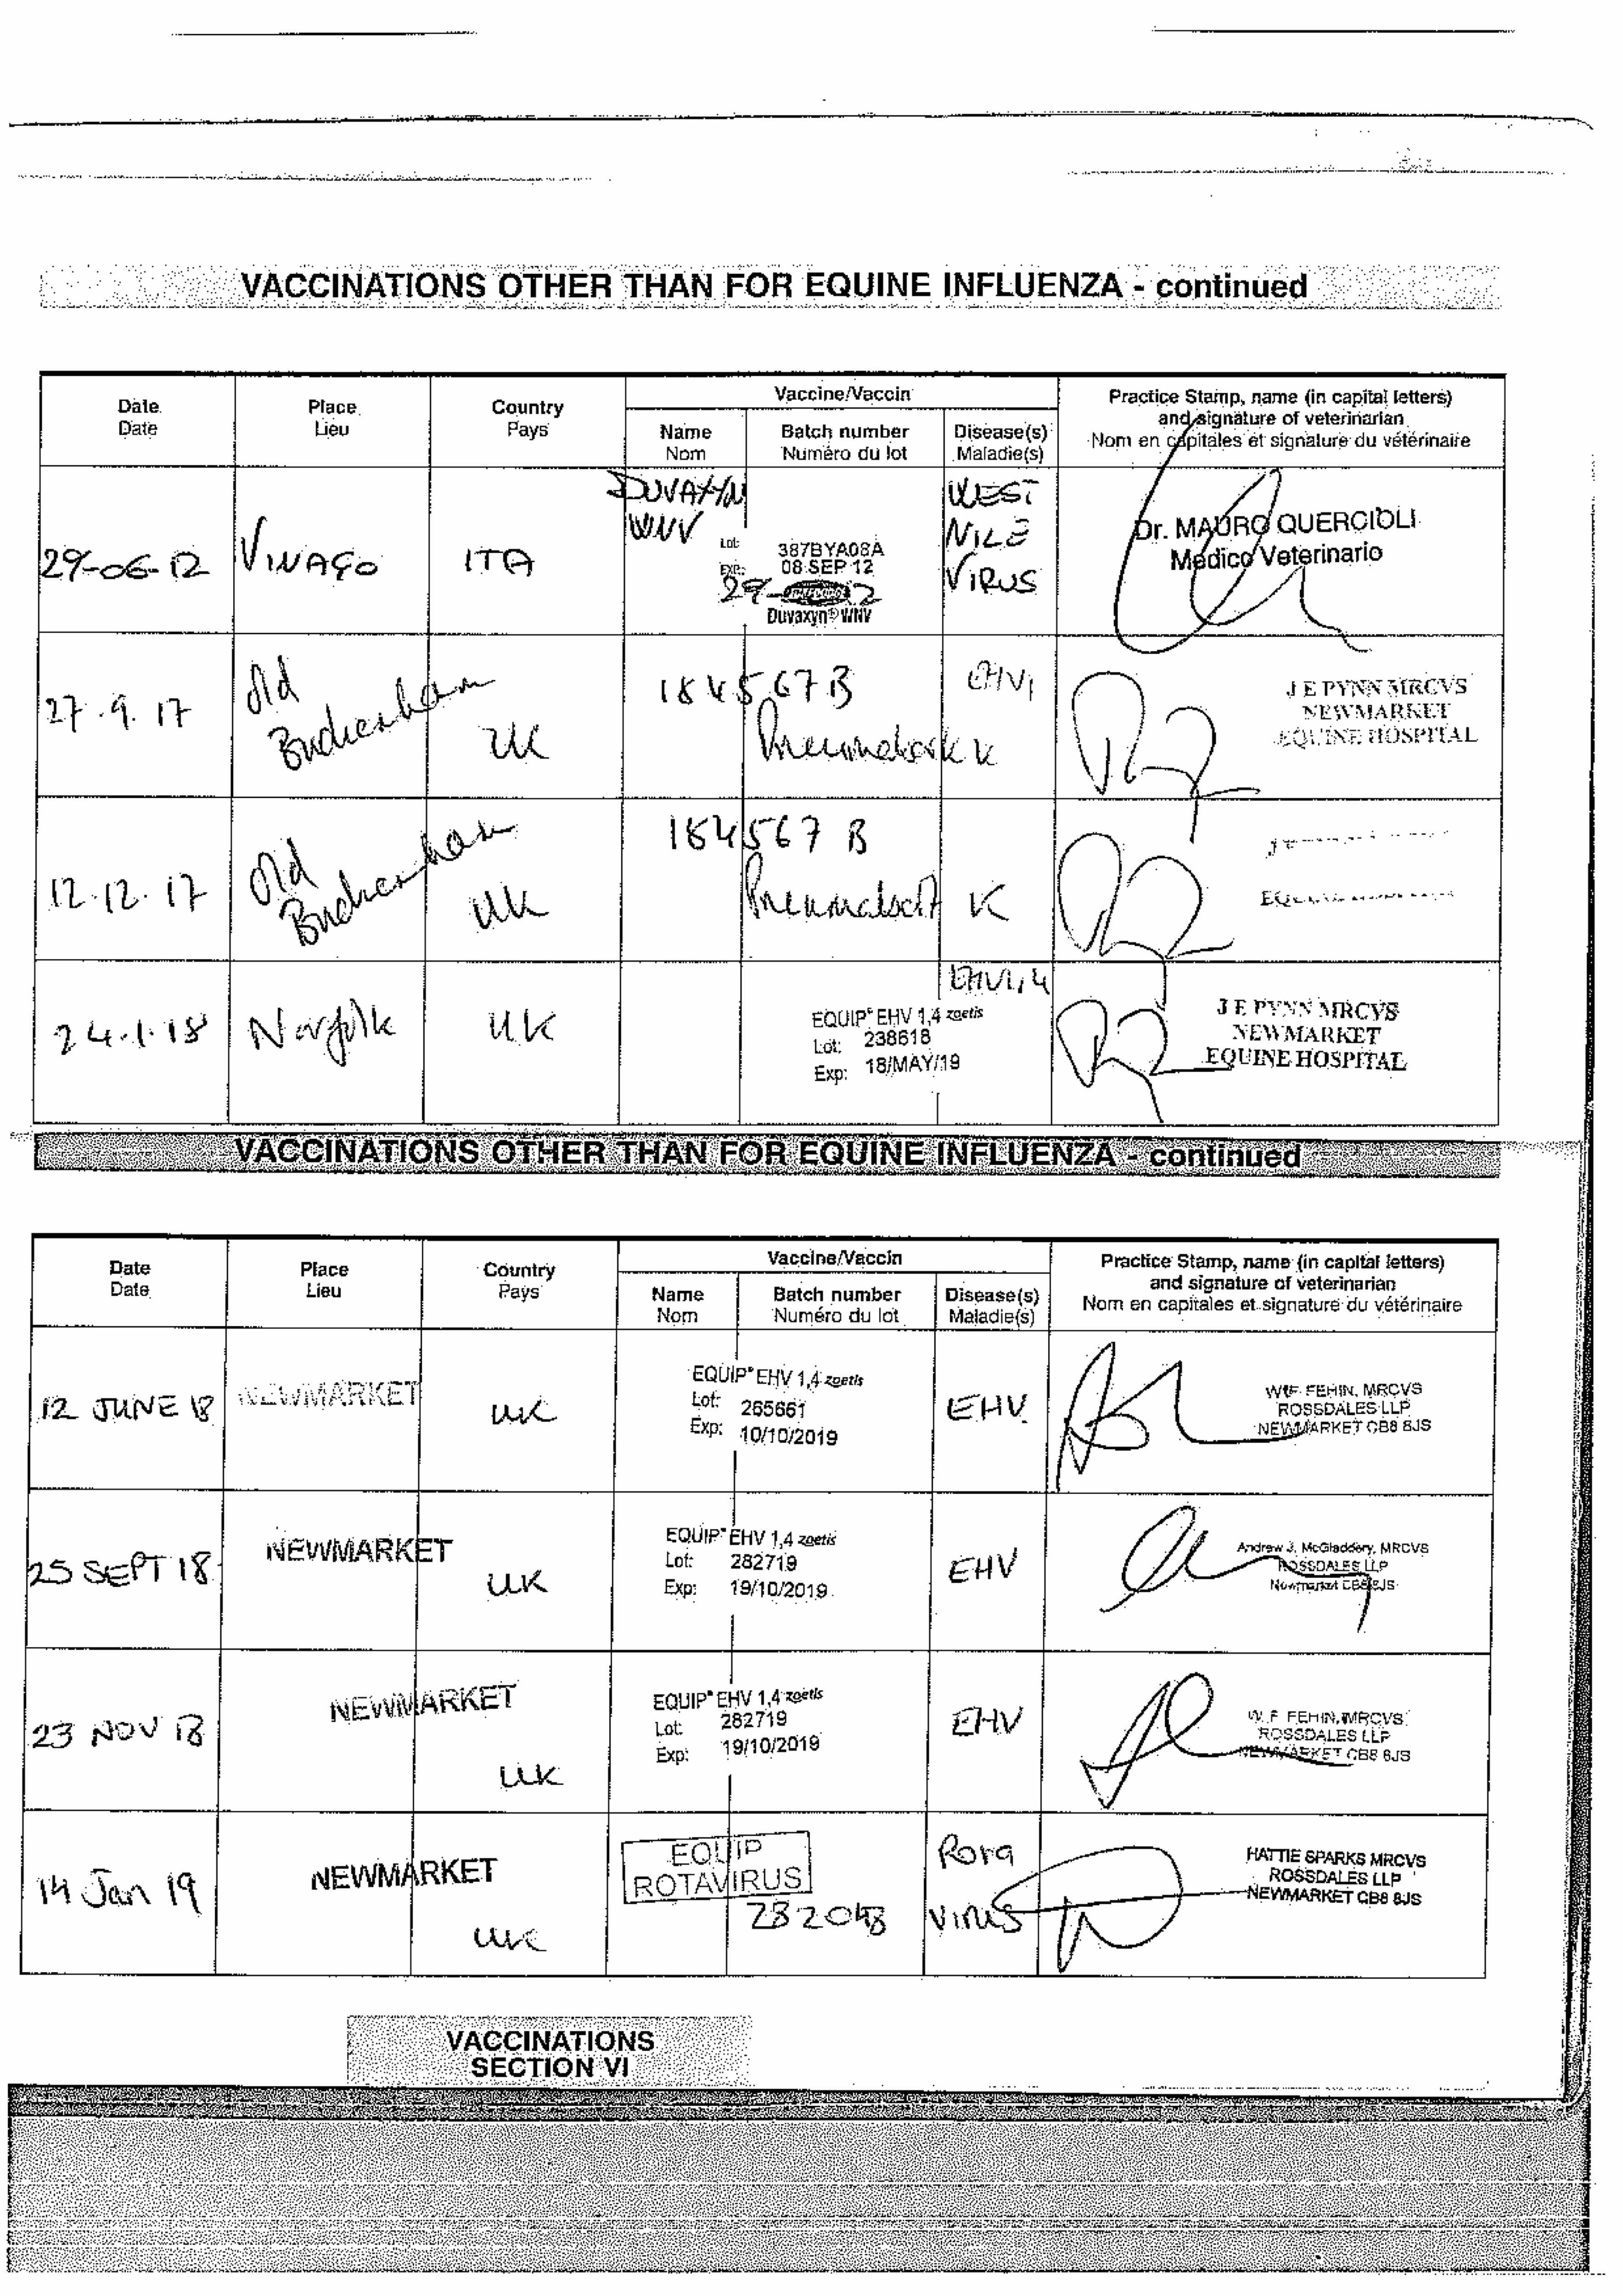 VACCINATIONS OTHER THAN FOR EQUINE INFLUENZA - continued
Date Date
Place Lieu
Country Pays
Vaccine/Vaccin
Name Nom
Batch number Numéro du lot
Disease(s) Maladie(s)
Practice Stamp, name (in capital letters)
and signature of veterinarian
Nom en capitales et signature du vétérinaire
29-06-12
VINAGO
ITA
DUVAXYN
WNV
Lot: 387BYA08A
EXP: 08 SEP 12
Duvaxyn® WNV
WEST
NILE
VIRUS
Dr. MAURO QUERCIOLI
Medico Veterinario
27.9.17
Old
Buckenham
UK
184567B
EHV1
K
J E PYNN MRCVS
NEWMARKET
EQUINE HOSPITAL
12.12.17
Old
Buckenham
UK
184567 B
K
24.1.18
Norfolk
UK
EHV1,4
EQUIP® EHV 1,4 zoetis
Lot: 238618
Exp: 18/MAY/19
J E PYNN MRCVS
NEWMARKET
EQUINE HOSPITAL
VACCINATIONS OTHER THAN FOR EQUINE INFLUENZA - continued
Date Date
Place Lieu
Country Pays
Vaccine/Vaccin
Name Nom
Batch number Numéro du lot
Disease(s) Maladie(s)
Practice Stamp, name (in capital letters)
and signature of veterinarian
Nom en capitales et signature du vétérinaire
12 JUNE 18
NEWMARKET
UK
EQUIP® EHV 1,4 zoetis
Lot: 265661
Exp: 10/10/2019
EHV
W F FEHIN, MRCVS
ROSSDALES LLP
NEWMARKET CB8 8JS
25 SEPT 18
NEWMARKET
UK
EQUIP® EHV 1,4 zoetis
Lot: 282719
Exp: 19/10/2019
EHV
Andrew J. McGladdery, MRCVS
ROSSDALES LLP
Newmarket CB8 8JS
23 NOV 18
NEWMARKET
UK
EQUIP® EHV 1,4 zoetis
Lot: 282719
Exp: 19/10/2019
EHV
W.F FEHIN, MRCVS
ROSSDALES LLP
NEWMARKET CB8 8JS
14 Jan 19
NEWMARKET
UK
EQUIP
ROTAVIRUS
Rota
virus
HATTIE SPARKS MRCVS
ROSSDALES LLP
NEWMARKET CB8 8JS
VACCINATIONS
SECTION VI